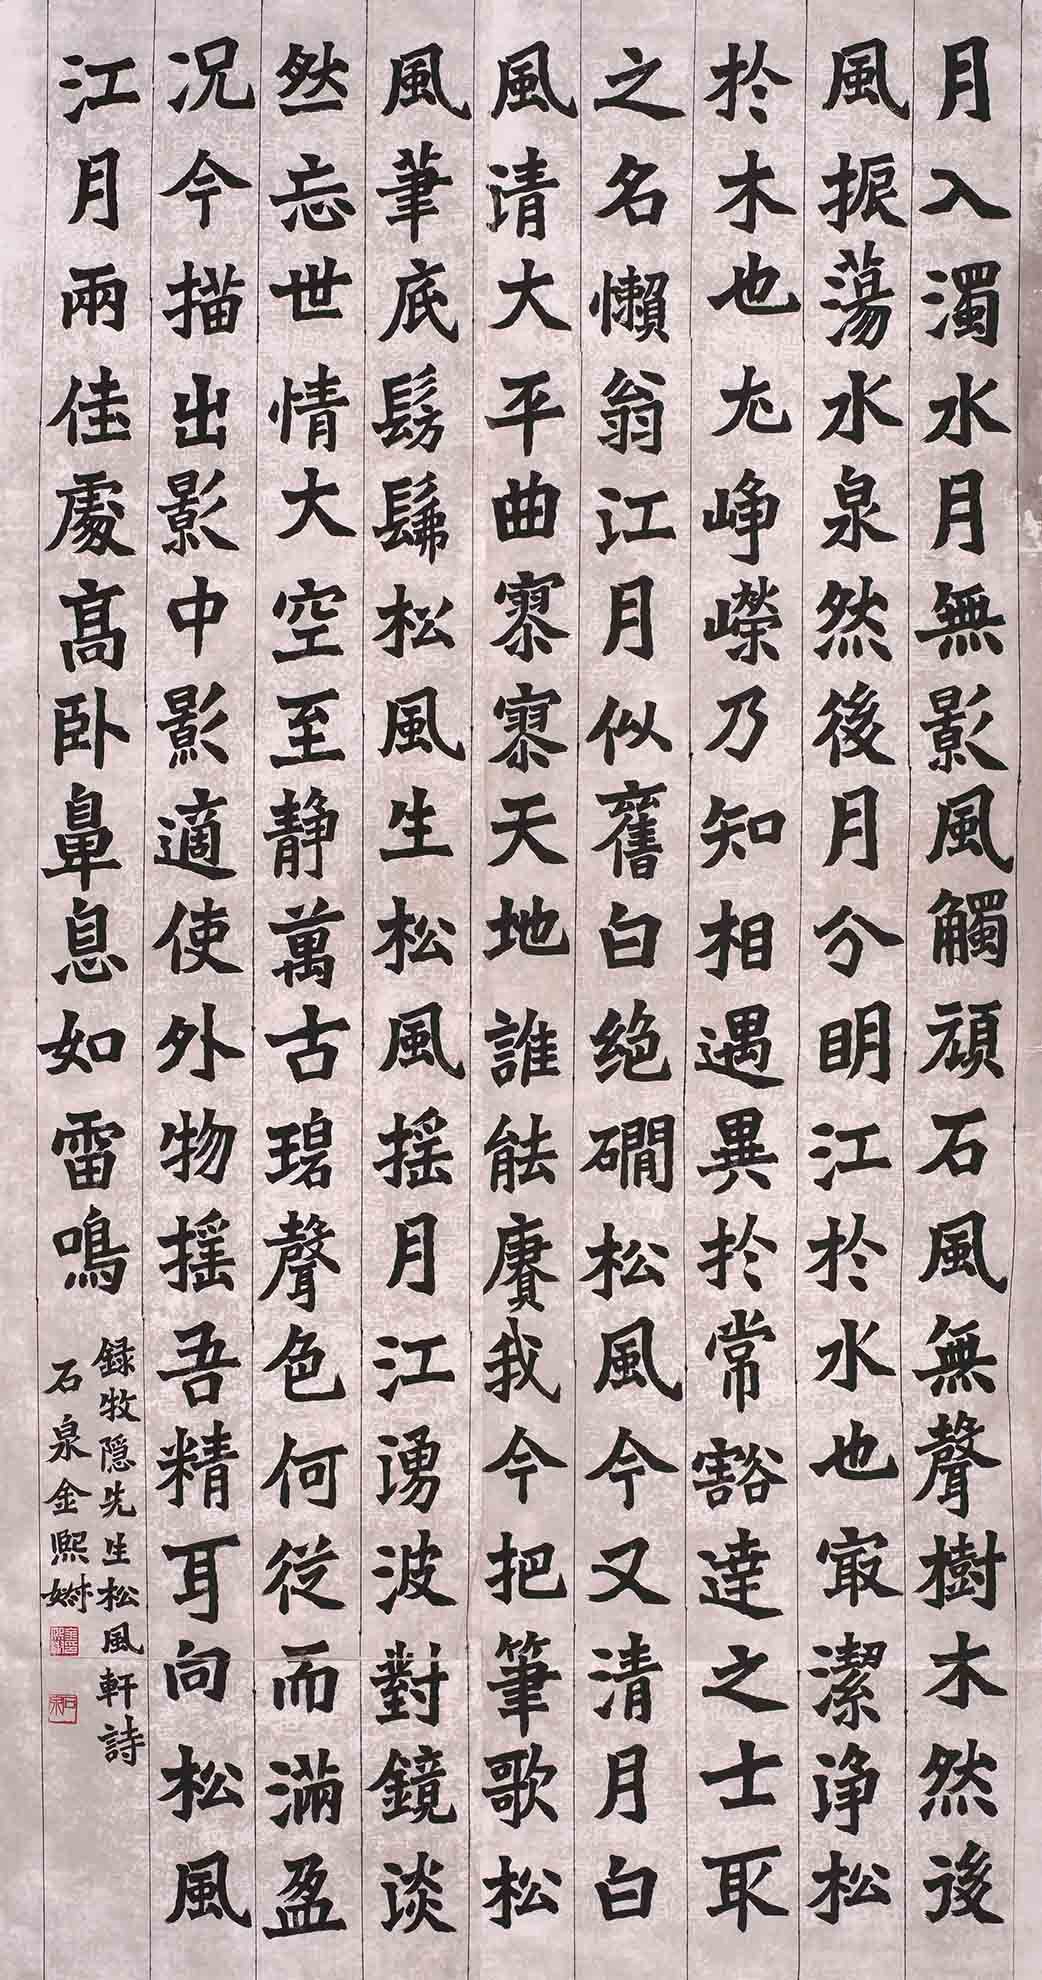 月入濁水月無影風觸頑石風無聲樹木然後
風振蕩水泉然後月分明江於水也冣潔浄松
於木也尤崢嶸乃知相遇異於常豁達之士取
之名懶翁江月似舊白绝磵松風今又清月白
風清大平曲寥寥天地誰能賡我今把筆歌松
風筆底髣髴松風生松風揺月江湧波對鏡淡
然忘世情大空至静萬古碧聲色何從而滿盈
况今描出影中影適使外物揺吾精耳向松風
江月兩佳處髙卧鼻息如雷鳴
録牧隠先生松風軒詩
石泉金熙